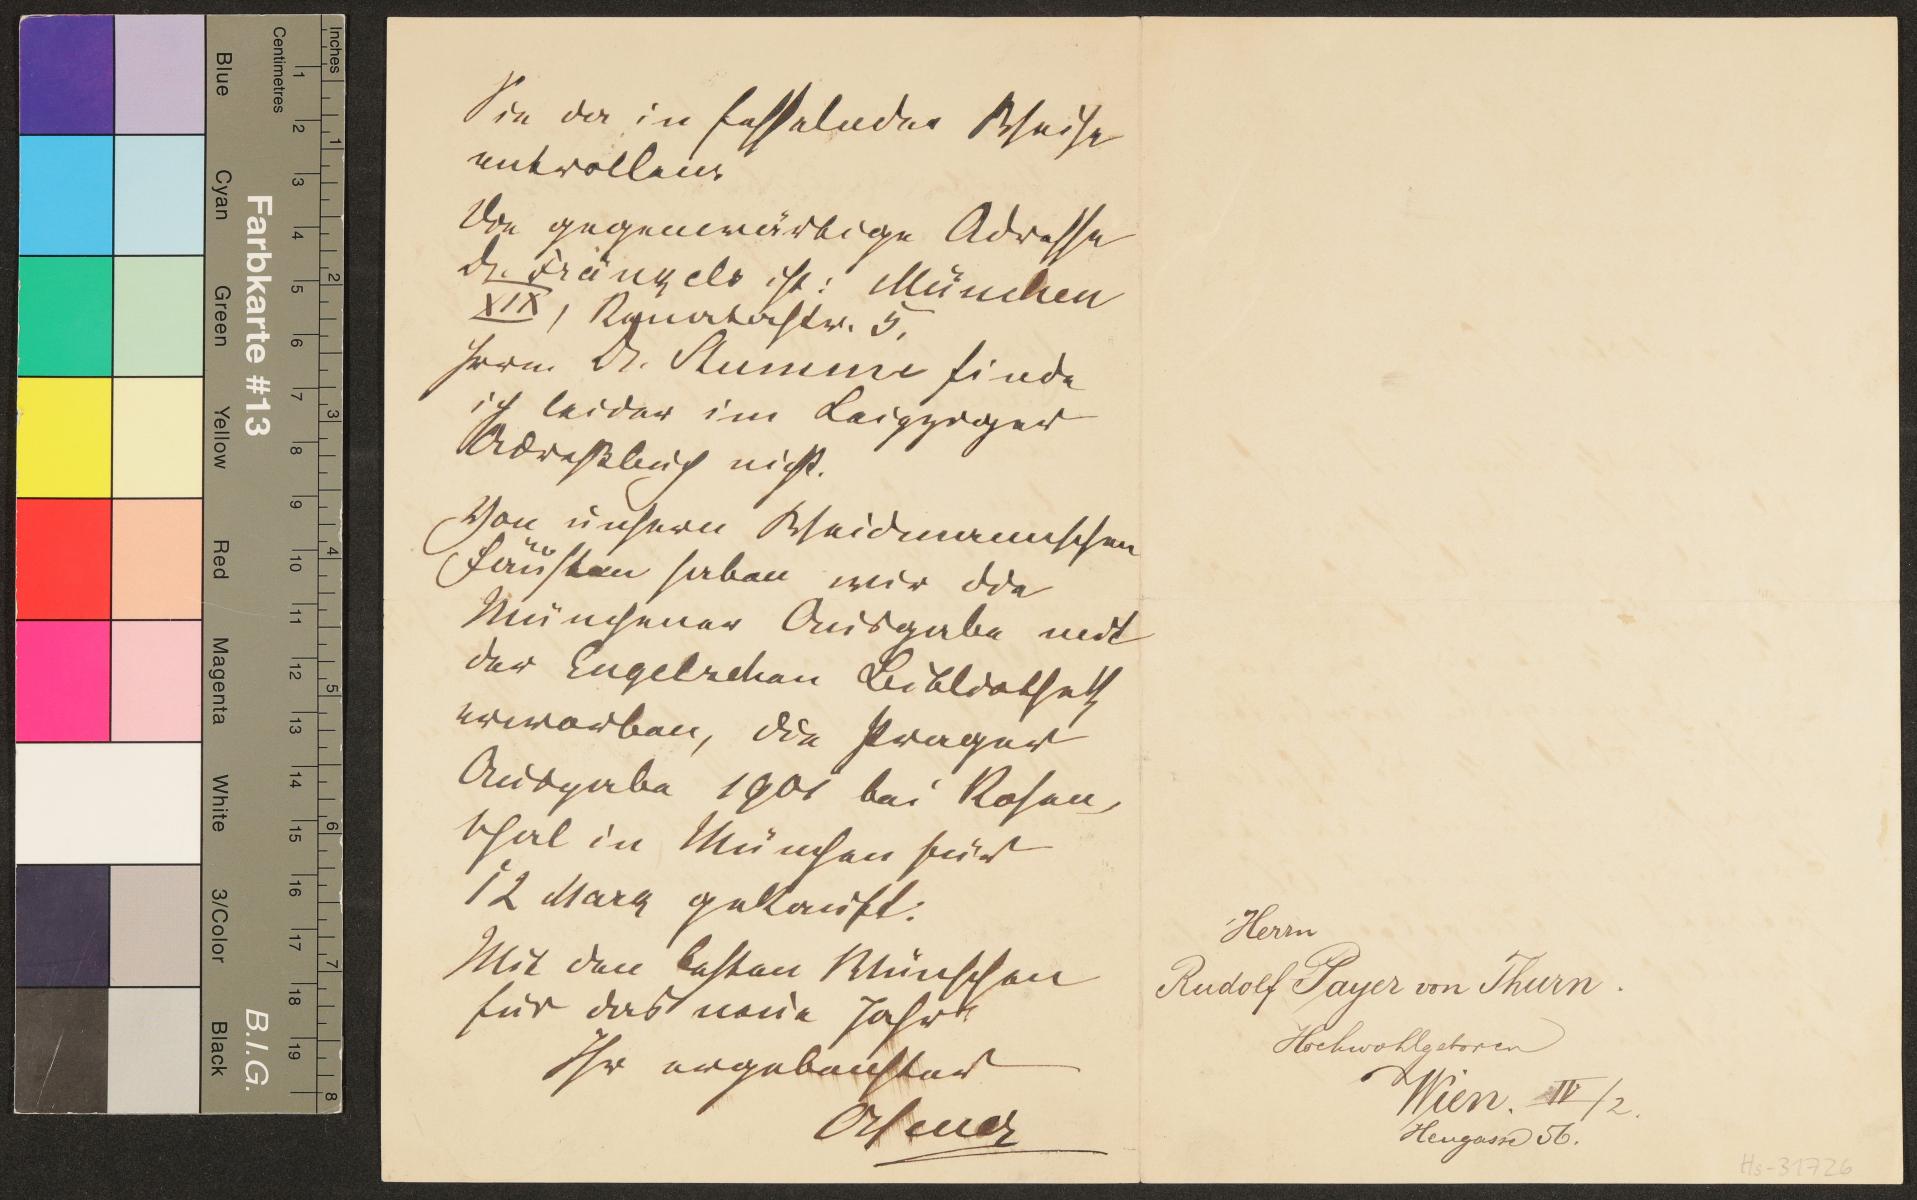 Sie da in fesselnder Weise
entrollen.
Die gegenwärtige Adresse
Dr. Fränkels ist: München
XIX, Renatastr. 5.
Herrn Dr. Stumme finde
ich leider im Leipziger
Adreßbuch nicht.
Von unsern Weidmannschen
Fäusten haben wir die
Münchener Ausgabe mit
der Engelschen Bibliothek
erworben, die Prager
Ausgabe 1901 bei Rosen-
thal in München für
12 Mark gekauft.
Mit den besten Wünschen
für das neue Jahr
Ihr ergebenster
Herrn
Rudolf Payer von Thurn.
Hochwohlgeboren
Wien. IV/2.
Heugasse 56.
Hs-31726
Inches
Centimetres
1 2 3 4 5 6 7 8 9 10 11 12 13 14 15 16 17 18 19
1 2 3 4 5 6 7 8
Farbkarte #13
B.I.G.
Blue
Cyan
Green
Yellow
Red
Magenta
White
3/Color
Black